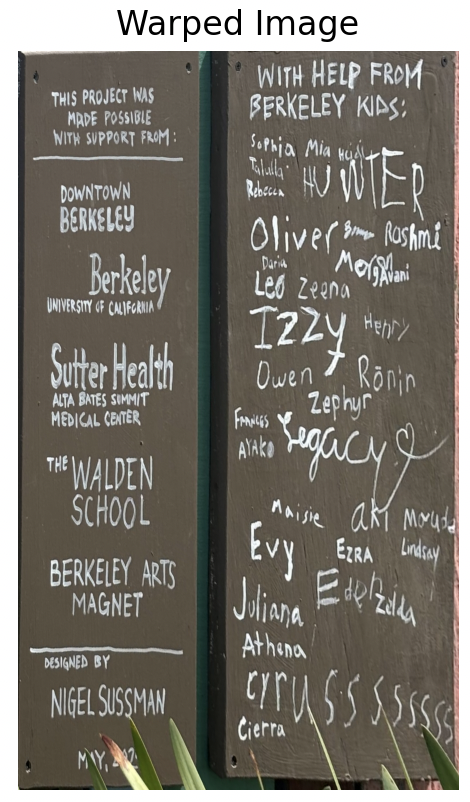 Warped Image
THIS PROJECT WAS
MADE POSSIBLE
WITH SUPPORT FROM:
DOWNTOWN
BERKELEY
Berkeley
UNIVERSITY OF CALIFORNIA
Sutter Health
ALTA BATES SUMMIT
MEDICAL CENTER
THE WALDEN
SCHOOL
BERKELEY ARTS
MAGNET
DESIGNED BY
NIGEL SUSSMAN
WITH HELP FROM
BERKELEY KIDS:
Sophia Mia Heidi
Talulla
Rebecca
HUNTER
Oliver Rashmi
Daria Morgan
Leo Zeena Avani
Izzy Henry
Owen Rōnin
Zephyr
FRANCES
AYAKO
Legacy
Maisie aki
Evy EZRA Lindsay
Juliana Zelda
Athena
cyrussssssss
Cierra